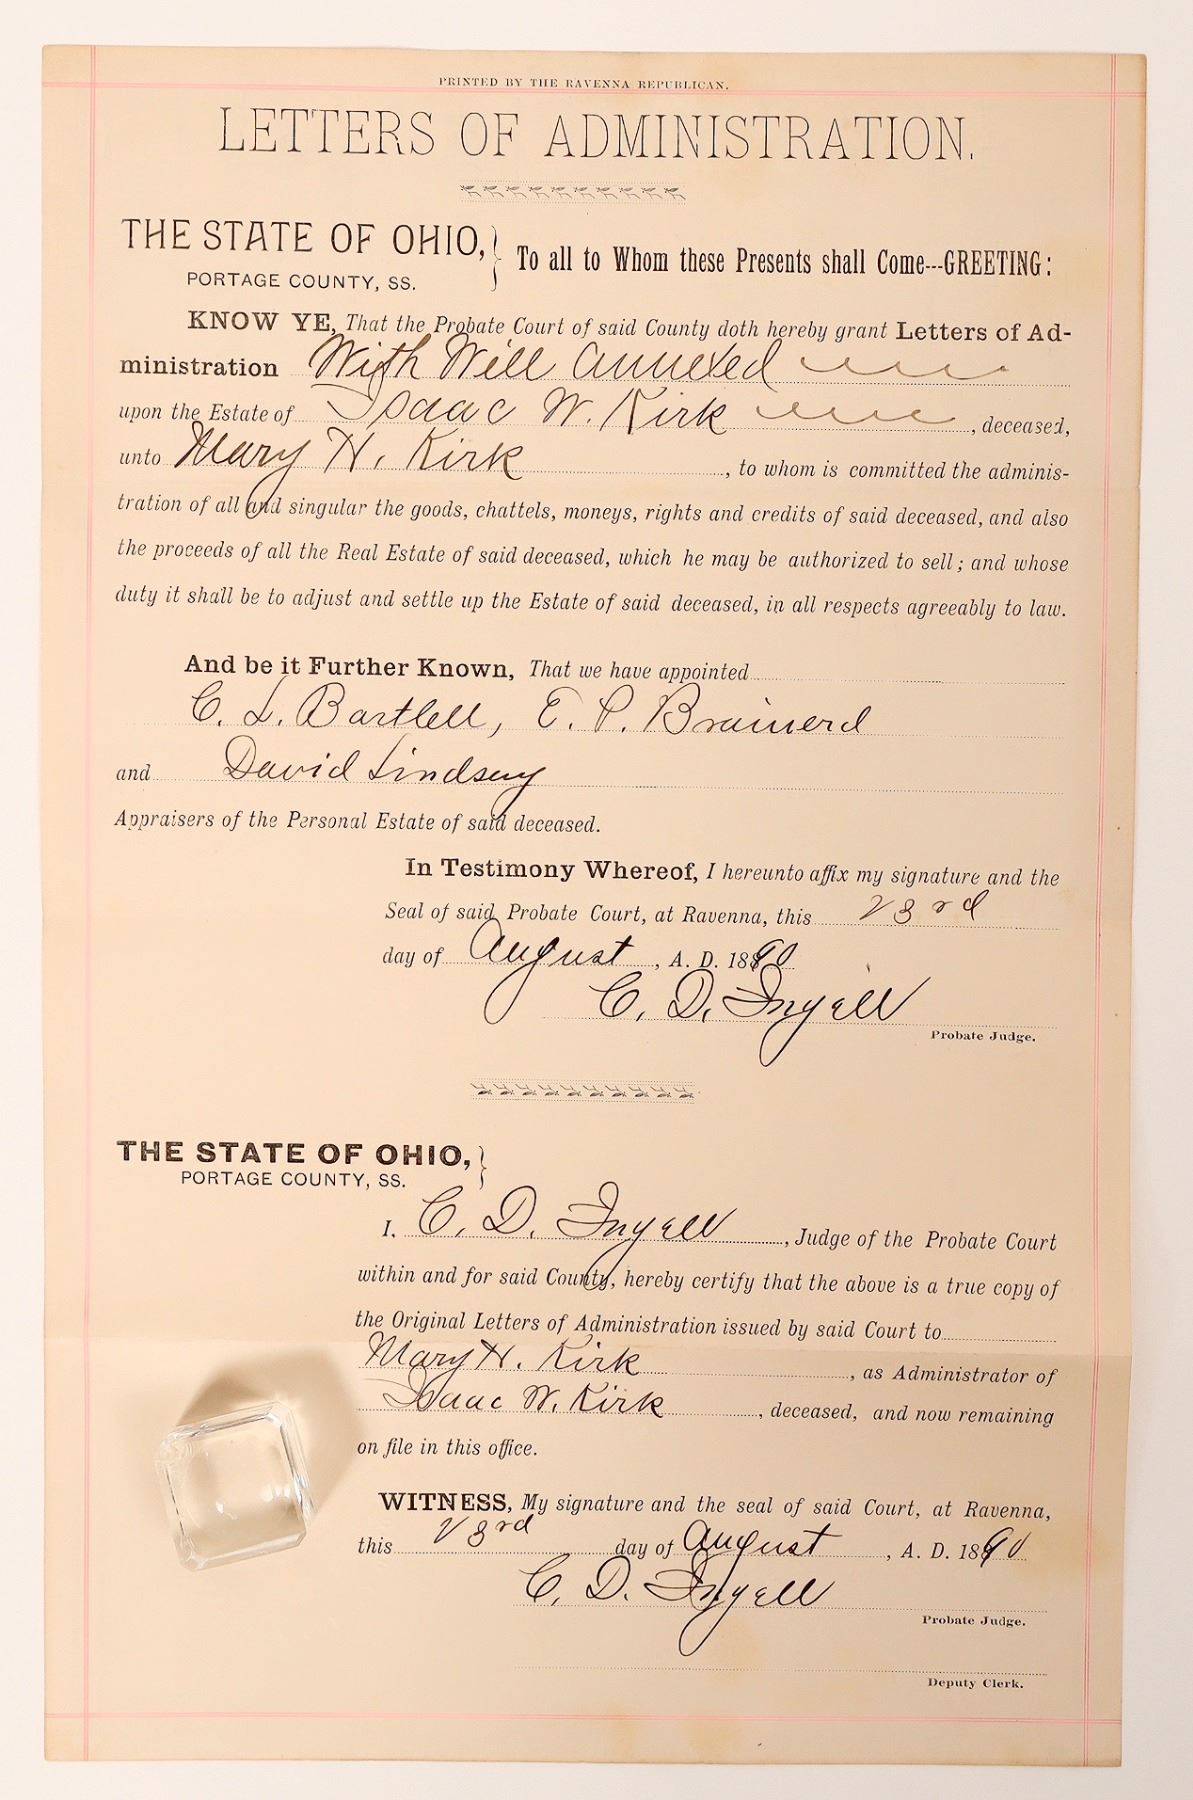 PRINTED BY THE RAVENNA REPUBLICAN.
LETTERS OF ADMINISTRATION.
THE STATE OF OHIO,
PORTAGE COUNTY, SS.
To all to Whom these Presents shall Come---GREETING:
KNOW YE, That the Probate Court of said County doth hereby grant Letters of Ad-
ministration With Will annexed
upon the Estate of Isaac W. Kirk, deceased,
unto Mary H. Kirk, to whom is committed the adminis-
tration of all and singular the goods, chattels, moneys, rights and credits of said deceased, and also
the proceeds of all the Real Estate of said deceased, which he may be authorized to sell; and whose
duty it shall be to adjust and settle up the Estate of said deceased, in all respects agreeably to law.
And be it Further Known, That we have appointed
C. L. Bartlell, E. P. Brainerd
and David Lindsay
Appraisers of the Personal Estate of said deceased.
In Testimony Whereof, I hereunto affix my signature and the
Seal of said Probate Court, at Ravenna, this 23rd
day of August, A. D. 1890
C. D. Ingell
Probate Judge.
THE STATE OF OHIO,
PORTAGE COUNTY, SS.
I. C. D. Ingell, Judge of the Probate Court
within and for said County, hereby certify that the above is a true copy of
the Original Letters of Administration issued by said Court to
Mary H. Kirk, as Administrator of
Isaac W. Kirk, deceased, and now remaining
on file in this office.
WITNESS, My signature and the seal of said Court, at Ravenna,
this 23rd day of August, A. D. 1890
C. D. Ingell
Probate Judge.
Deputy Clerk.